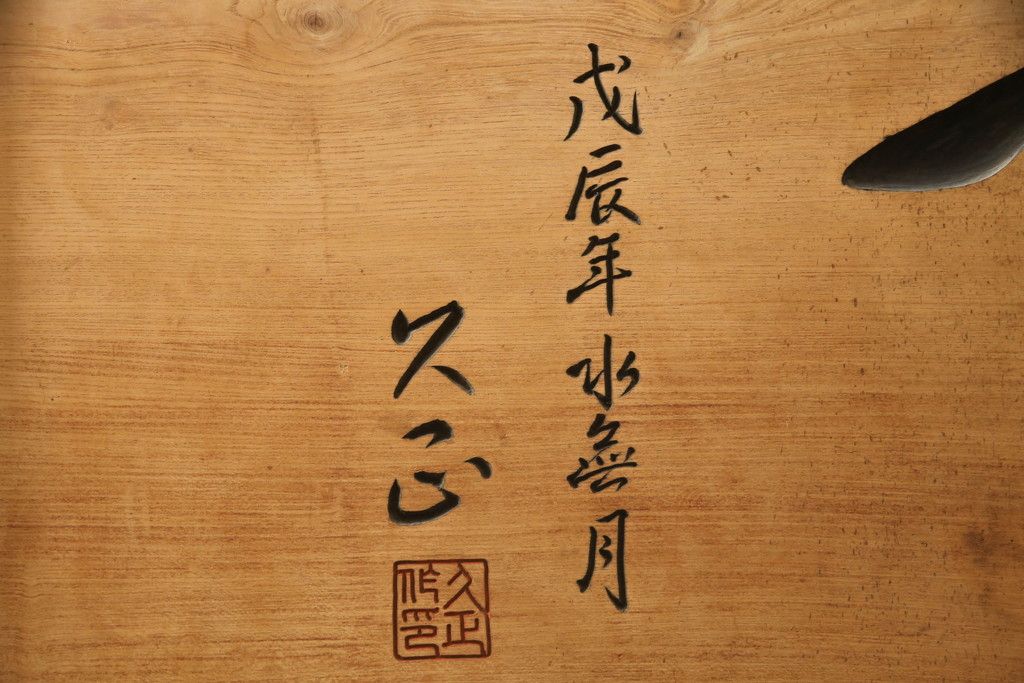 戊辰年 水無月
久正
久正
作印